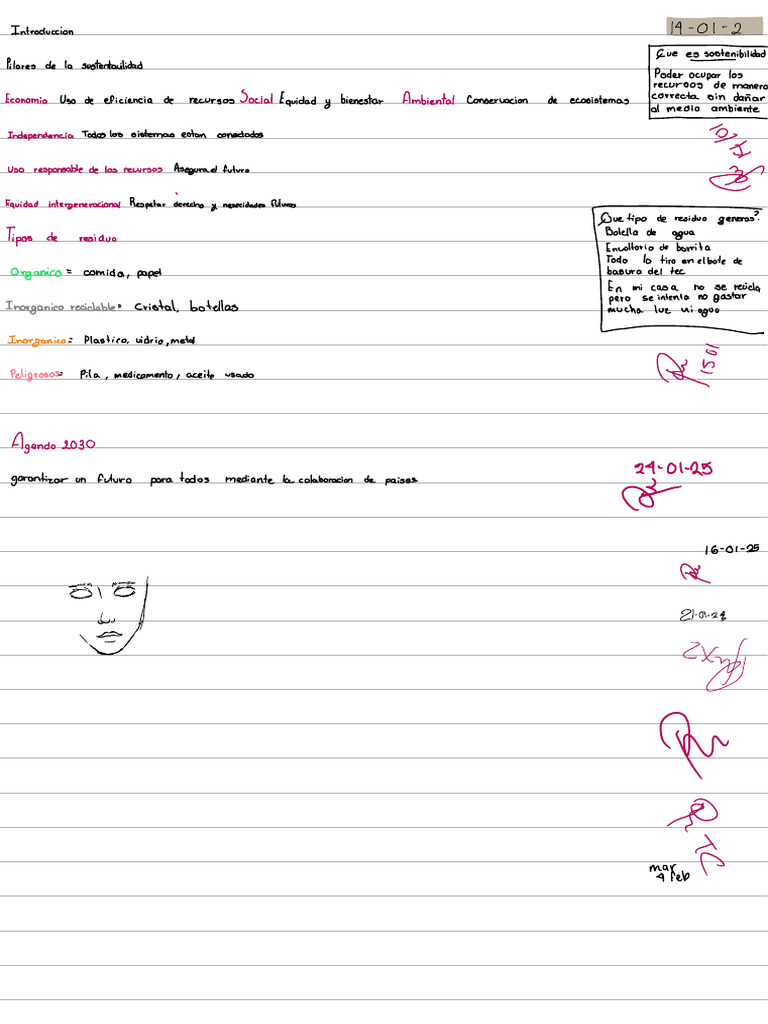 Introduccion
14-01-2
Pilares de la sustentauilidad
Economia Uso de eficiencia de recursos Social Equidad y bienestar Ambiental Conservacion de ecosistemas
Que es sostenibilidad
Poder ocupar los
recursos de manera
correcta sin dañar
al medio ambiente
Independencia Todos los sistemas estan conectados
Uso responsable de los recursos Asegura el futuro
Equidad intergeneracional Respetar derecho y necesidades futuras
Que tipo de residuo generas?
Botella de agua
Envoltorio de barrita
Todo lo tiro en el bote de
basura del tec
En mi casa no se recicla
pero se intenta no gastar
mucha luz ni agua
Tipos de residuo
Organico = comida, papel
Inorganico reciclable= Cristal, botellas
Inorganico= Plastico, vidrio, metal
1501
Peligrosos= Pila, medicamento, aceite usado
Agenda 2030
garantizar un futuro para todos mediante la colaboracion de paises
24-01-25
16-01-25
21-01-24
x2
TC
mar
4 feb